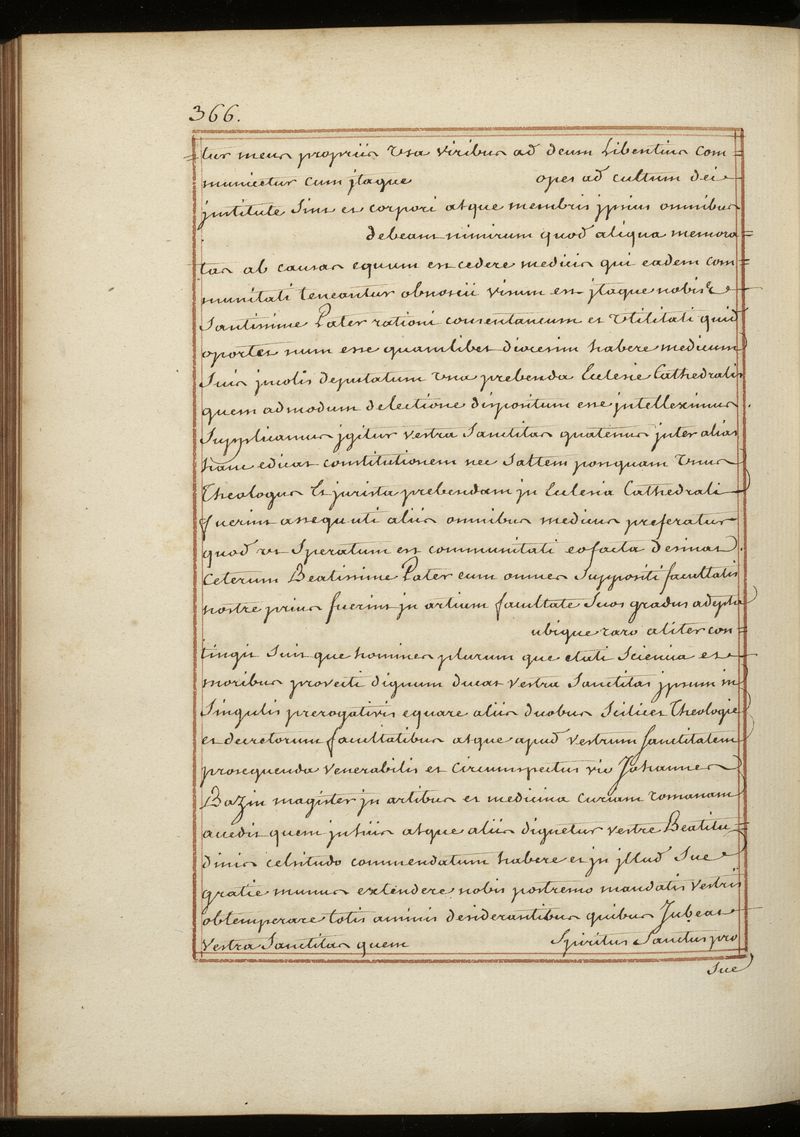 366.
tur meus propriis Una viribus ad deum Libentius com
municetur cum jtaque opes ad cultum dei
justitute Sint et corpori atque membris jpsius omnibus
debeant nimirum quod aliqua memora
tas ab causas equum est cedere medicis qui eadem com
munitati teneantur obnoxii visum est jtaque nobis
Santissime Pater rationi consentaneum et Utilitati quid
oportet num esse quamlibet diocesim habere medicum
Suis jncolis deputatum Una prebenda Eclesie Cathedralis
quem admodum delectione dispositum esse jntelleximus
Supplicamus jgitur vestra Sanctitas quatenus jnter alias
hanc edicat constitutionem nec Saltem posquam Unus
Theologus Et jurista prebendam jn Eclesia Cathedrali
fuerint assequuti aliis omnibus medicus preferatur
quod ut Speratum est communitati eofacta desinat
Ceterum Beatissime Pater cum omnes Suppositi facultatis
nostre prius fuerint jn artium facultate Suos gradus adepta
ubique raro aliter con
tingit Sint que homines plurum que etati Sciencia et
moribus provecti dignum ducat vestra Sanctitas jpsum in
Singulis prerogativis equare aliis duobus Scilicet Theologie
et decretorum facultatibus atque apud vestrum Sanctitatem
prosequenda venerabilis et Circumspectus vir Johannes
Bazin magister jn artibus et medicina curiam romanam
accedit quem justiis atque aliis dignetur vestre Beatitu
dinis celsitudo commendatum habere et jn jllud Sue
gratie munus extendere nobis postremo mandatis vestris
obtemperare totis animis desiderantibus quibus Jubeat
vestra Sanctitas quem Spiritus Sanctus pro
Sue